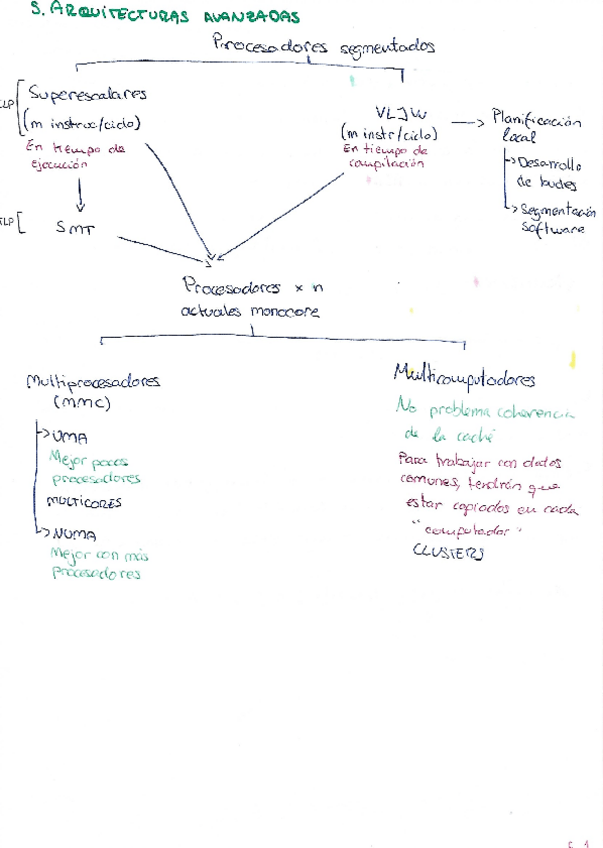 5. ARQUITECTURAS AVANZADAS
Procesadores segmentados
Superescalares
(m instruc/ciclo)
En tiempo de
ejecución
VLIW
(m instr/ciclo)
En tiempo de
compilación
Planificación
local
Desarrollo
de bucles
Segmentación
software
SMT
Procesadores x n
actuales monocore
Multiprocesadores
(MMC)
UMA
Mejor pocos
procesadores
MULTICORES
NUMA
Mejor con más
procesadores
Multicomputadores
No problema coherencia
de la caché
Para trabajar con datos
comunes, tendrán que
estar copiados en cada
"computador"
CLUSTERS